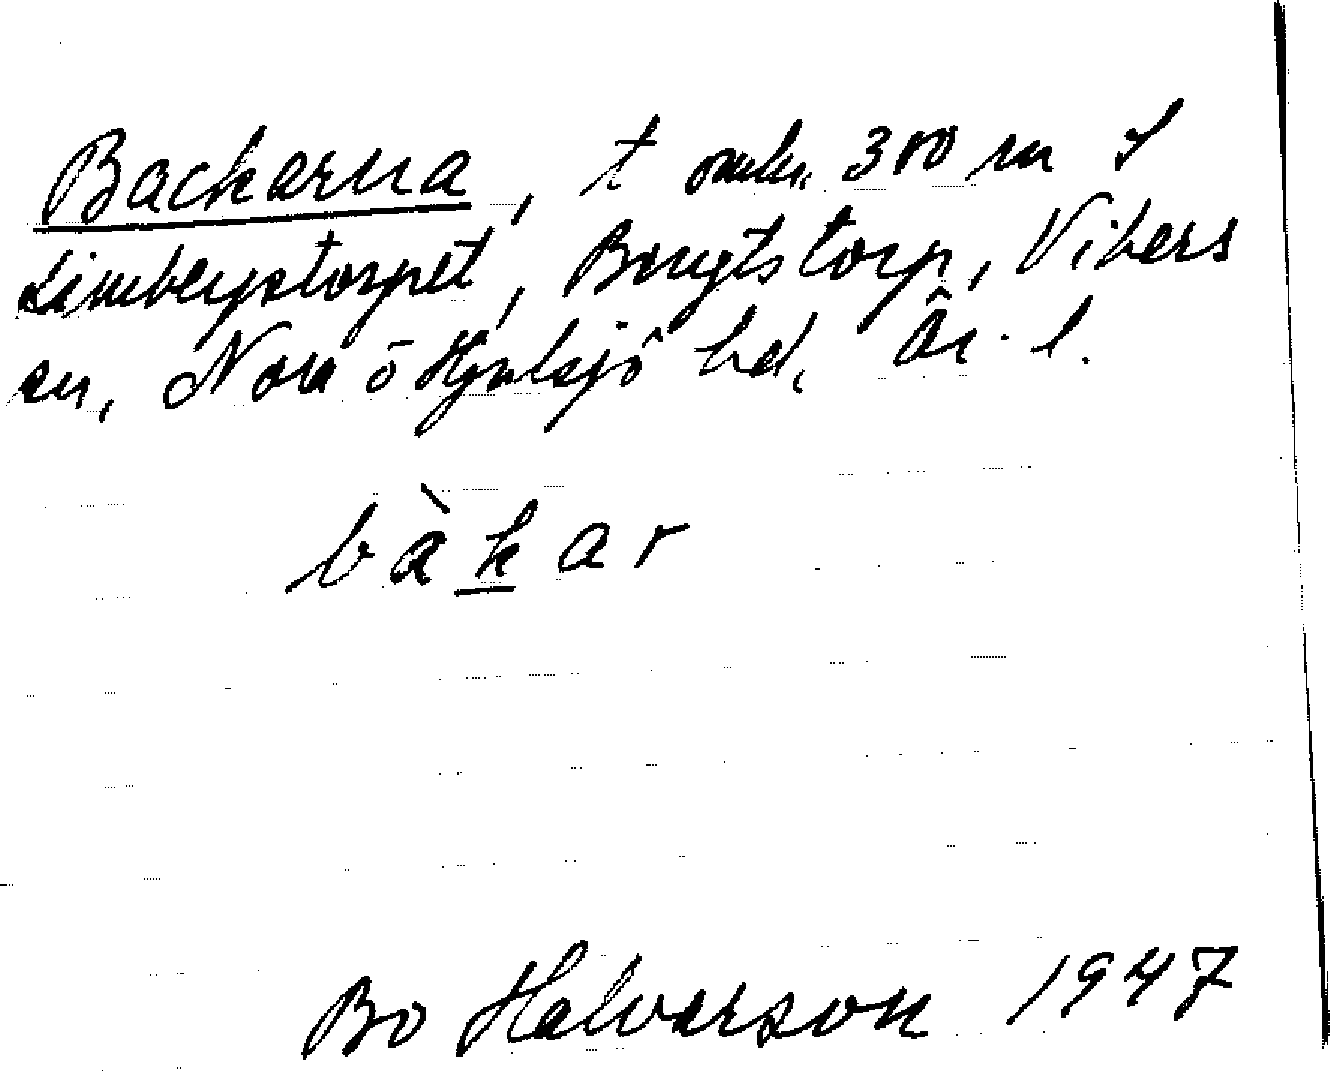 Backarna, t omkr. 300 m S
Limbergstorpet, Bengtstorp, Vikers
sn, Nora o Hjulsjö hd, Ör. l.
bàkar
Bo Halvarson 1947